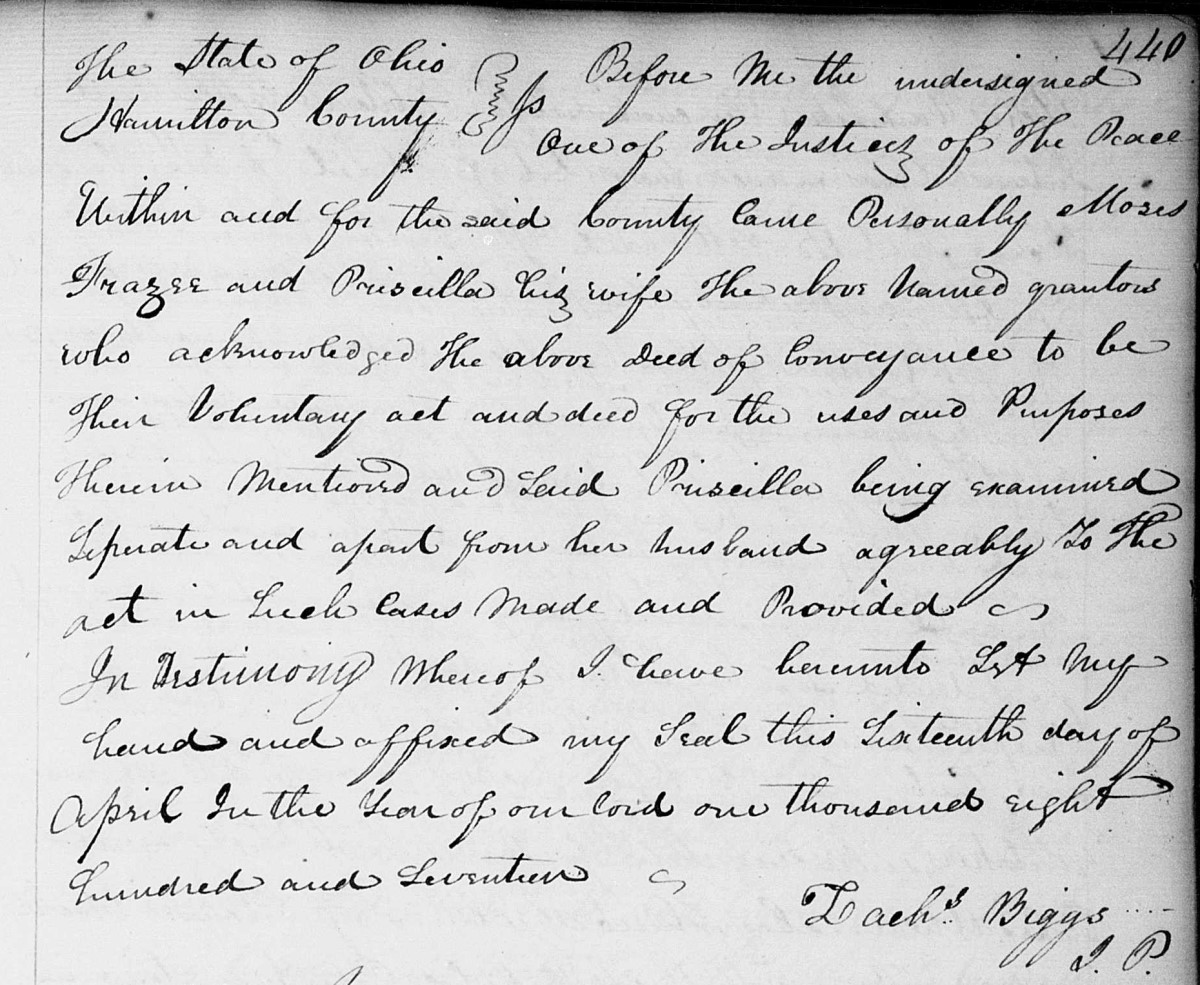 440
The State of Ohio } ss Before Me the undersigned
Hamilton County } One of The Justices of The Peace
Within and for the said County Came Personally Moses
Frazee and Priscilla his wife The above Named grantors
who acknowledged The above deed of Conveyance to be
Their Voluntary act and deed for the uses and Purposes
Therein Mentioned and Said Priscilla being examined
Seperate and apart from her husband agreeably To The
act in Such Cases Made and Provided
In Testimony Whereof I have hereunto Set My
hand and affixed my Seal this Sixteenth day of
April In the Year of our Lord one thousand eight
hundred and Seventeen
Zachs. Biggs
J. P.